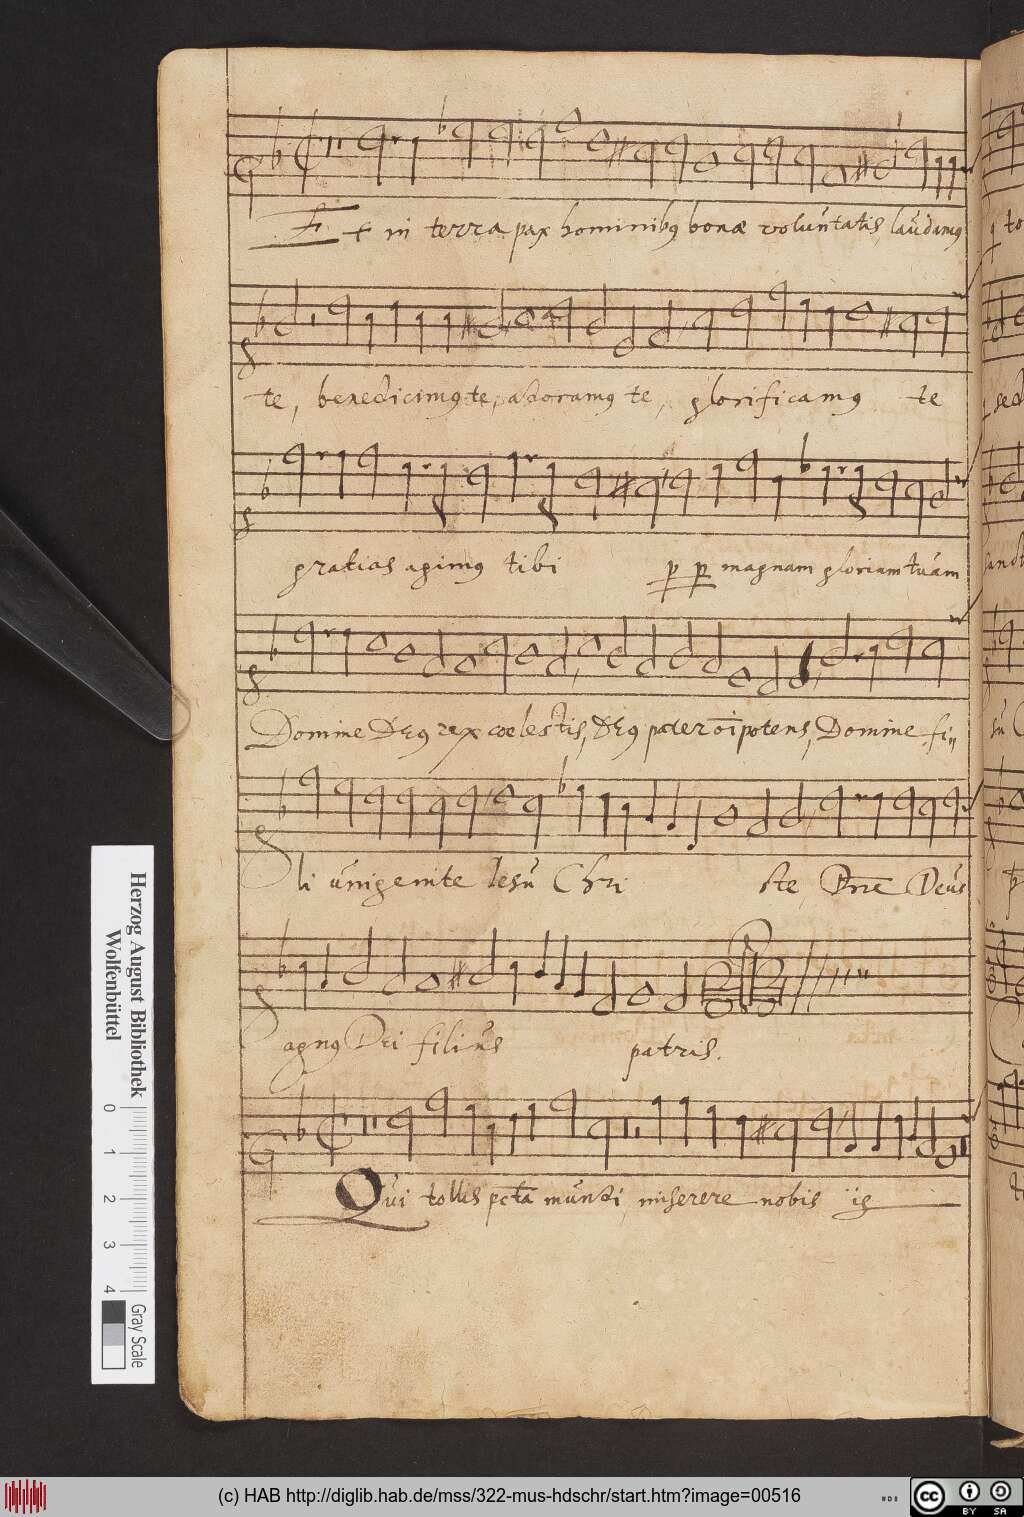 Et in terra pax hominibꝰ bonæ voluntatis, laudamꝰ
te, benedicimꝰ te, adoramꝰ te, glorificamꝰ te
gratias agimꝰ tibi ꝑ ꝑ magnam gloriam tuam
Domine DEꝰ rex cœlestis, DEꝰ pater oīpotens, Domine fi„
li unigenite Iesu Chri ste, Dn̄e Deus
agnꝰ Dei filius patris.
Qui tollis pctā mundi, miserere nobis ijs
q to
sed
Herzog August Bibliothek
Wolfenbüttel
0 1 2 3 4 Gray Scale
(c) HAB http://diglib.hab.de/mss/322-mus-hdschr/start.htm?image=00516
cc BY SA